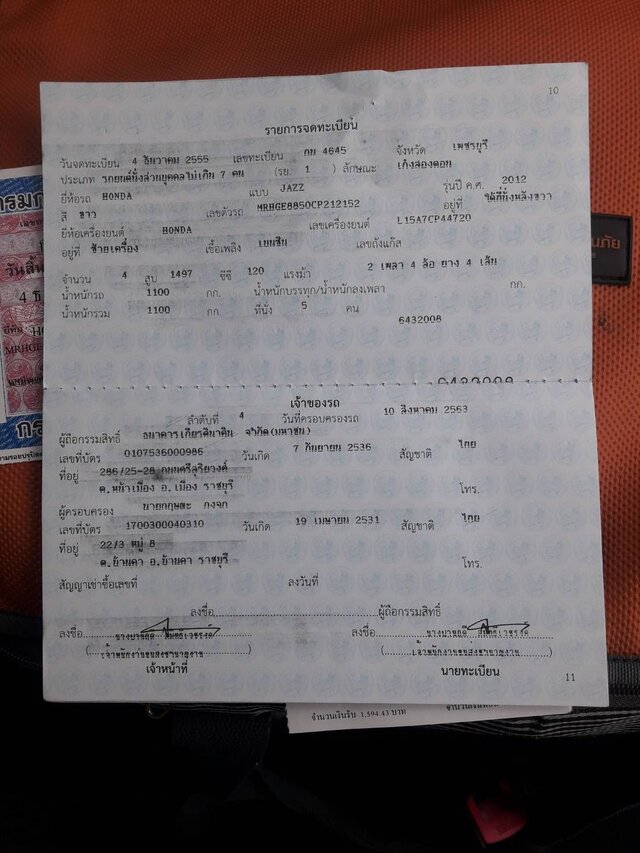 10
รายการจดทะเบียน
วันจดทะเบียน 4 ธันวาคม 2555 เลขทะเบียน กน 4645 จังหวัด เพชรบุรี
ประเภท รถยนต์นั่งส่วนบุคคลไม่เกิน 7 คน (รย. 1 ) ลักษณะ เก๋งสองตอน
ยี่ห้อรถ HONDA แบบ JAZZ รุ่นปี ค.ศ. 2012
สี ขาว เลขตัวรถ MRHGE8850CP212152 อยู่ที่ ใต้ที่นั่งหลังขวา
ยี่ห้อเครื่องยนต์ HONDA เลขเครื่องยนต์ L15A7CP44720
อยู่ที่ ซ้ายเครื่อง เชื้อเพลิง เบนซิน เลขถังแก๊ส
จำนวน 4 สูบ 1497 ซีซี 120 แรงม้า 2 เพลา 4 ล้อ ยาง 4 เส้น
น้ำหนักรถ 1100 กก. น้ำหนักบรรทุก/น้ำหนักลงเพลา กก.
น้ำหนักรวม 1100 กก. ที่นั่ง 5 คน
6432008
6432008
เจ้าของรถ
ลำดับที่ 4 วันที่ครอบครองรถ 10 สิงหาคม 2563
ผู้ถือกรรมสิทธิ์ ธนาคารเกียรตินาคิน จำกัด(มหาชน)
เลขที่บัตร 0107536000986 วันเกิด 7 กันยายน 2536 สัญชาติ ไทย
ที่อยู่ 286/25-28 ถนนศรีสุริยวงศ์
ต.หน้าเมือง อ.เมือง ราชบุรี โทร.
ผู้ครอบครอง นายกฤษตะ กงจก
เลขที่บัตร 1700300040310 วันเกิด 19 เมษายน 2531 สัญชาติ ไทย
ที่อยู่ 22/3 หมู่ 8
ต.บ้านคา อ.บ้านคา ราชบุรี โทร.
สัญญาเช่าซื้อเลขที่ ลงวันที่
ลงชื่อ ผู้ถือกรรมสิทธิ์
ลงชื่อ ลงชื่อ
(เจ้าพนักงานขนส่งชำนาญงาน) (เจ้าพนักงานขนส่งชำนาญงาน)
เจ้าหน้าที่ นายทะเบียน
11
จำนวนเงินรับ 1,594.43 บาท
วันสิ้น
4 ธ
MRHGE